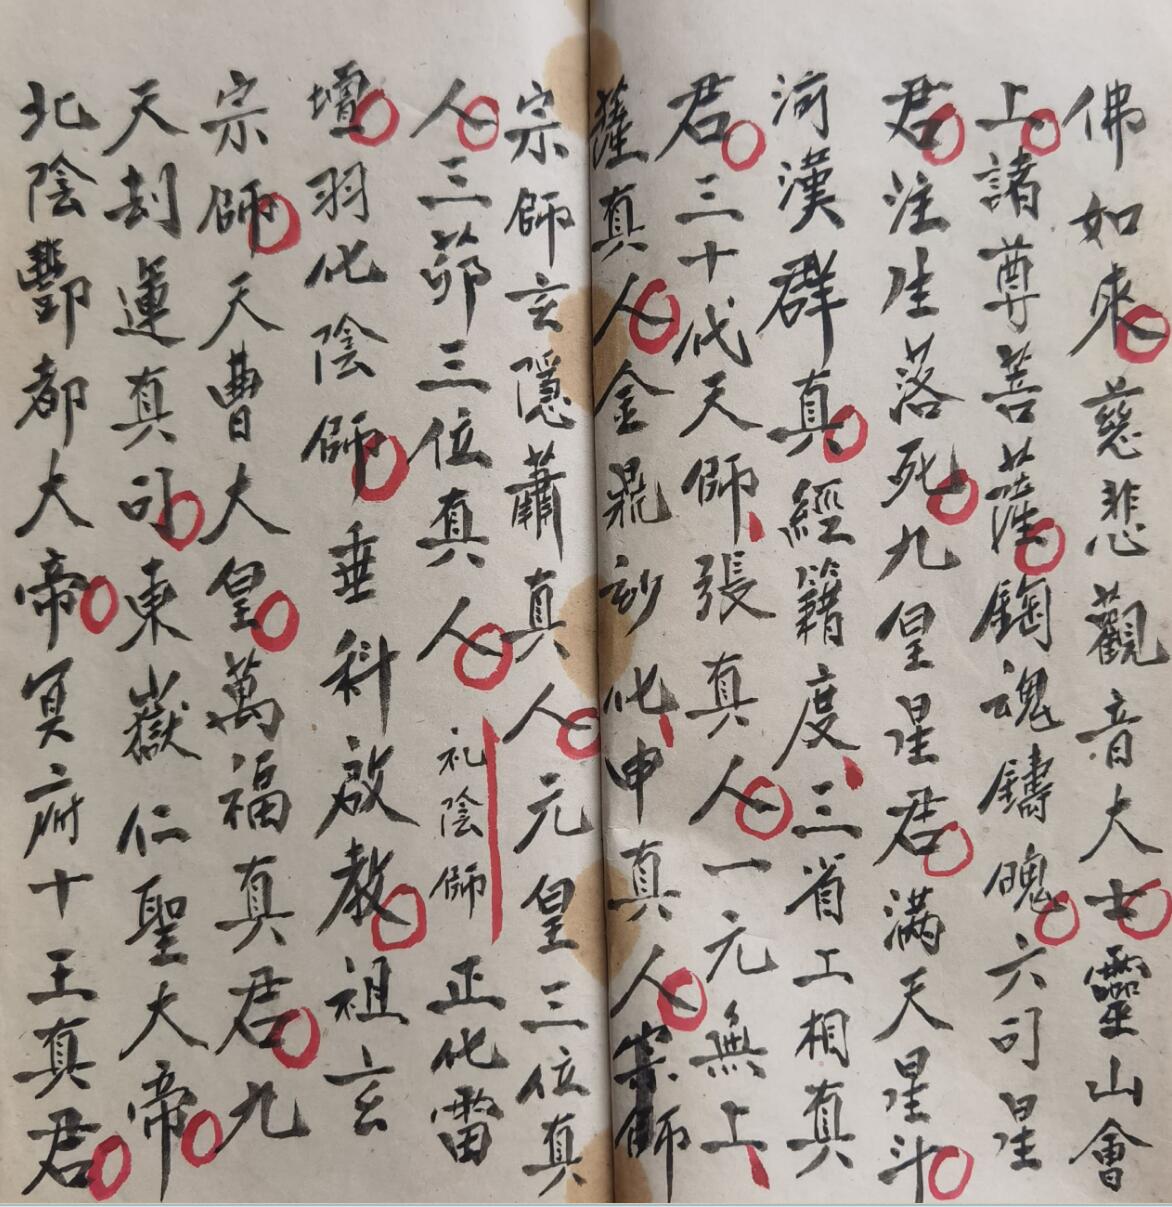 佛如來慈悲觀音大士靈山會
上諸尊菩薩鋾魂鑄魄六司星
君注生落死九皇星君滿天星斗
河漢群真經籍度三省工相真
君三十代天師張真人一元無上
薩真人金鼎妙化申真人宗師
宗師玄隱蕭真人元皇三位真
人三茆三位真人礼陰師正化雷
壇羽化陰師垂科啟教祖玄
宗師天曹大皇萬福真君九
天刦運真司東嶽仁聖大帝
北陰酆都大帝冥府十王真君